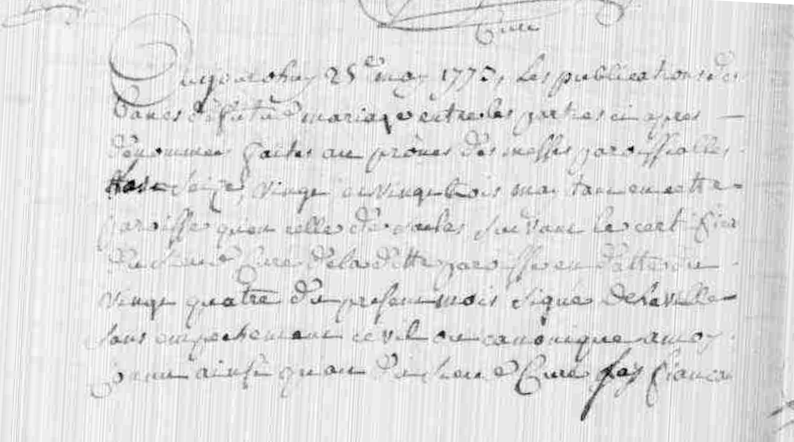 Curé
Aujourdhuy 25e may 1775, les publications des
bancs du futur mariage entre les parties ci apres
denommées faites au prônes des messes paroissialles
seize, vingt et vingt trois mai tant en cette
paroisse qu'en celle de suivant le certifica
du sieur Curé de la ditte paroisse en datte du
vingt quatre du present mois signé Delaville
sans empechement civil ou canonique a moy
connu ainsi qu'au di sieur Curé fiança